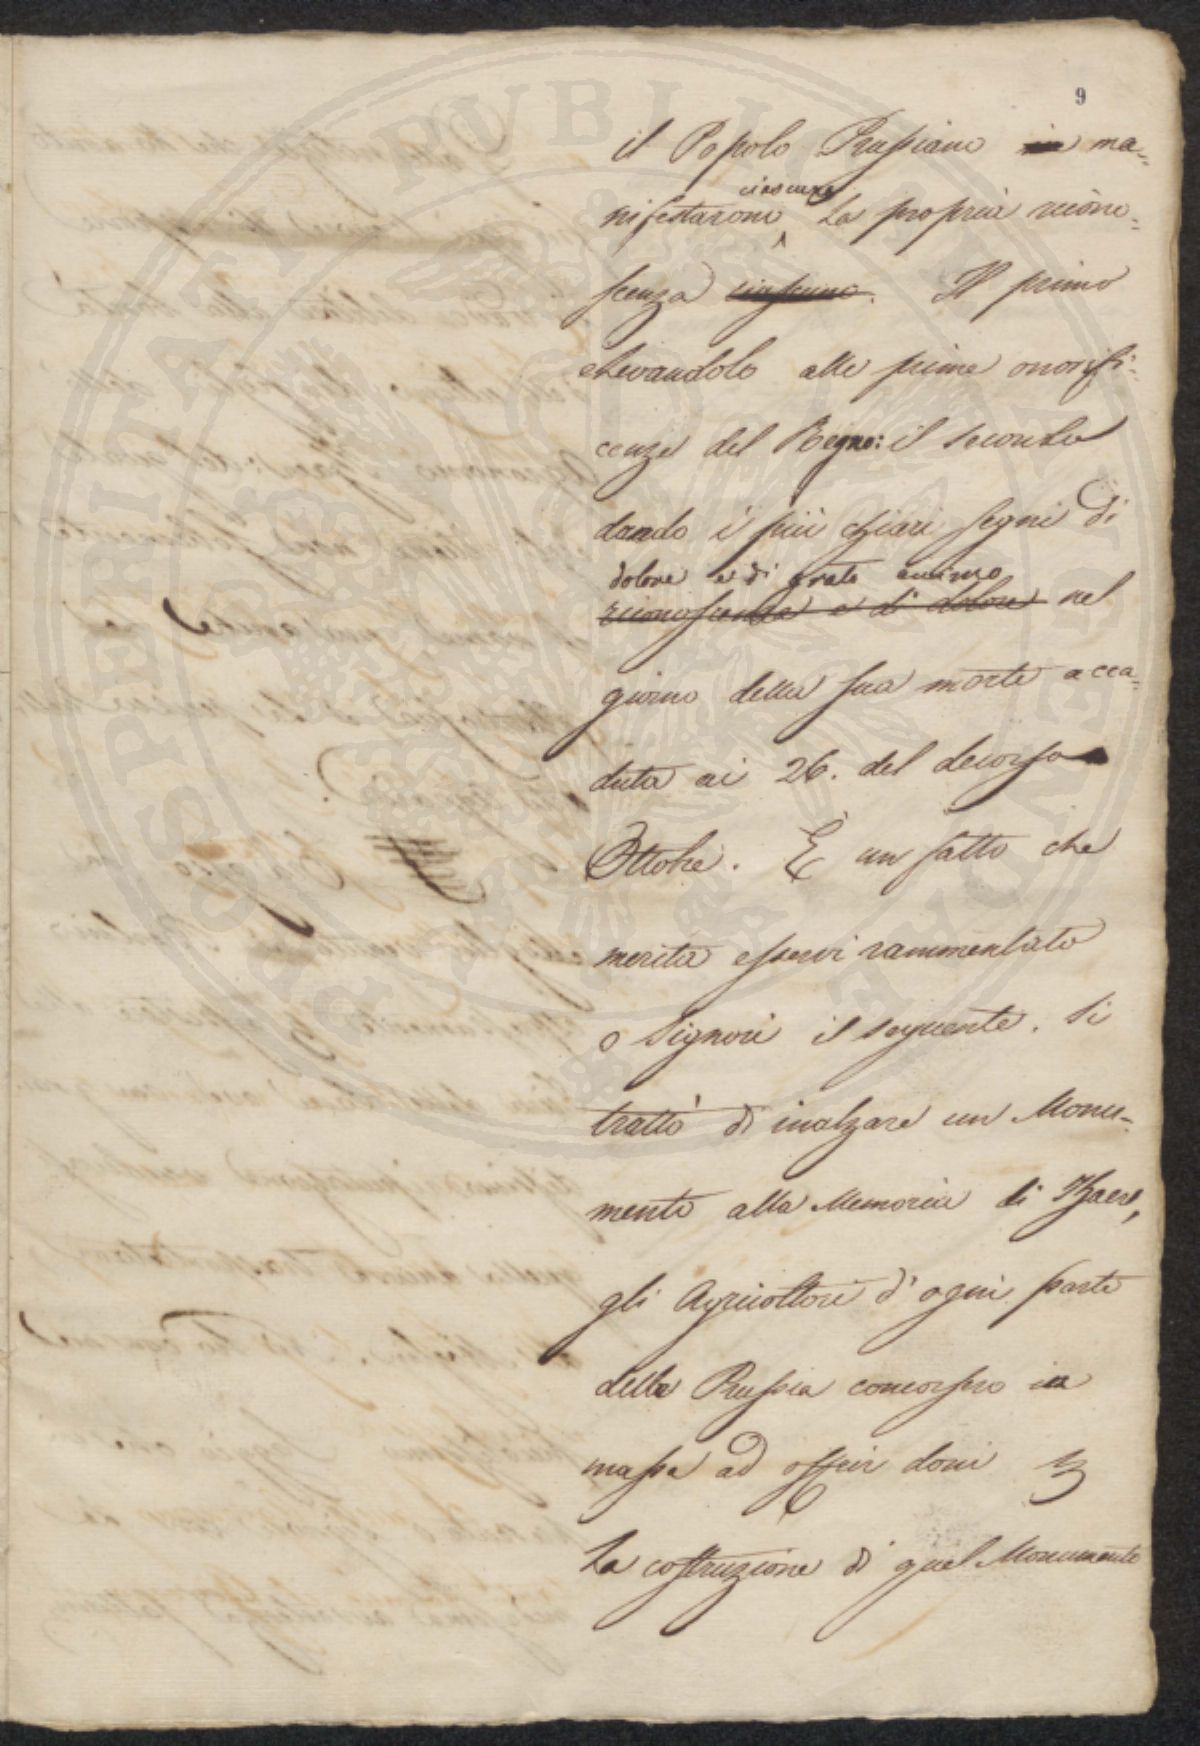 9
il Popolo Prussiano in ma=
nifestarono ciascuno la propria ricono=
scenza ciascuno. Il primo
elevandolo alle prime onorifi=
cenze del Regno: il secondo
dando i più chiari segni di
dolore e di grato animo
riconoscenza e di dolore nel
giorno della sua morte acca=
duta ai 26. del decorso
Ottobre. È un fatto che
merita esservi rammentato
o Signori il seguente. Si
trattò di inalzare un Monu=
mento alla Memoria di Thaer,
gli Agricoltori d'ogni parte
della Prussia concorsero in
massa ad offrir doni
la costruzione di quel Monumento